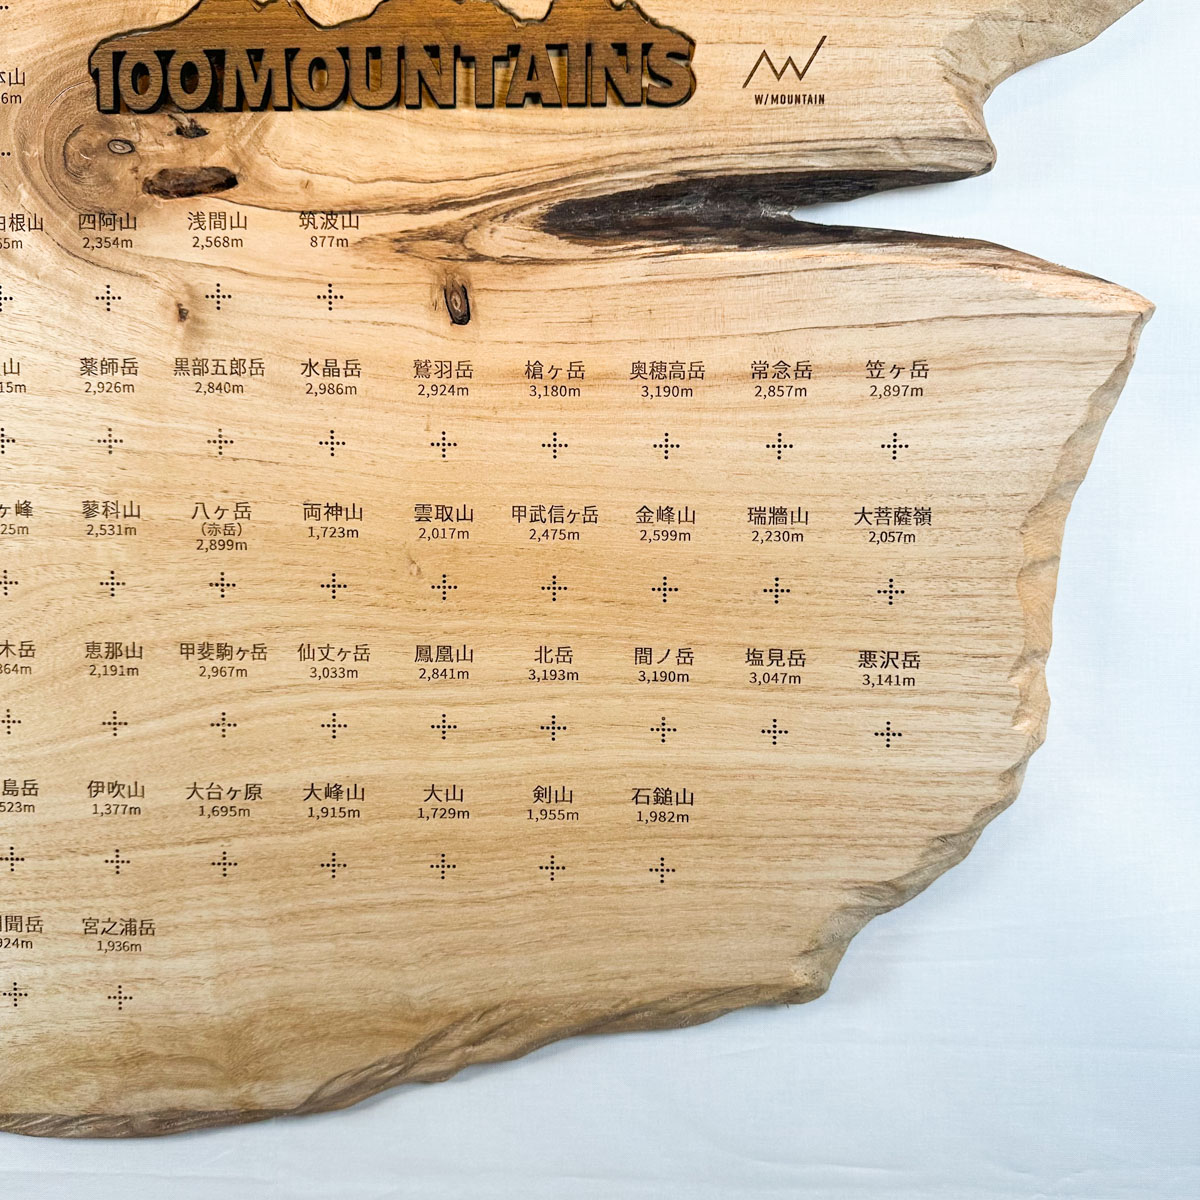 100MOUNTAINS
W/MOUNTAIN
本山
6m
白根山 四阿山 浅間山 筑波山
2,354m 2,568m 877m
山 薬師岳 黒部五郎岳 水晶岳 鷲羽岳 槍ヶ岳 奥穂高岳 常念岳 笠ヶ岳
15m 2,926m 2,840m 2,986m 2,924m 3,180m 3,190m 2,857m 2,897m
ヶ峰 蓼科山 八ヶ岳 両神山 雲取山 甲武信ヶ岳 金峰山 瑞牆山 大菩薩嶺
25m 2,531m (赤岳) 1,723m 2,017m 2,475m 2,599m 2,230m 2,057m
2,899m
木岳 恵那山 甲斐駒ヶ岳 仙丈ヶ岳 鳳凰山 北岳 間ノ岳 塩見岳 悪沢岳
864m 2,191m 2,967m 3,033m 2,841m 3,193m 3,190m 3,047m 3,141m
島岳 伊吹山 大台ヶ原 大峰山 大山 剣山 石鎚山
523m 1,377m 1,695m 1,915m 1,729m 1,955m 1,982m
聞岳 宮之浦岳
924m 1,936m